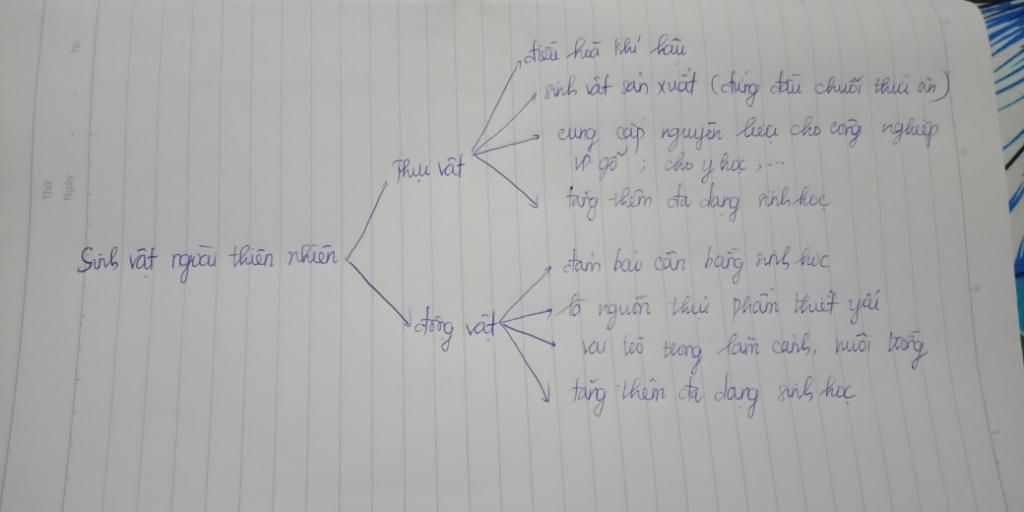 No.
Thứ
Ngày
điều hoà khí hậu
sinh vật sản xuất (đứng đầu chuỗi thức ăn)
Thực vật
cung cấp nguyên liệu cho công nghiệp
gỗ; cho y học,...
tăng thêm đa dạng sinh học
Sinh vật ngoài thiên nhiên
động vật
đảm bảo cân bằng sinh học
là nguồn thực phẩm thiết yếu
vai trò trong làm cảnh, nuôi trồng
tăng thêm đa dạng sinh học